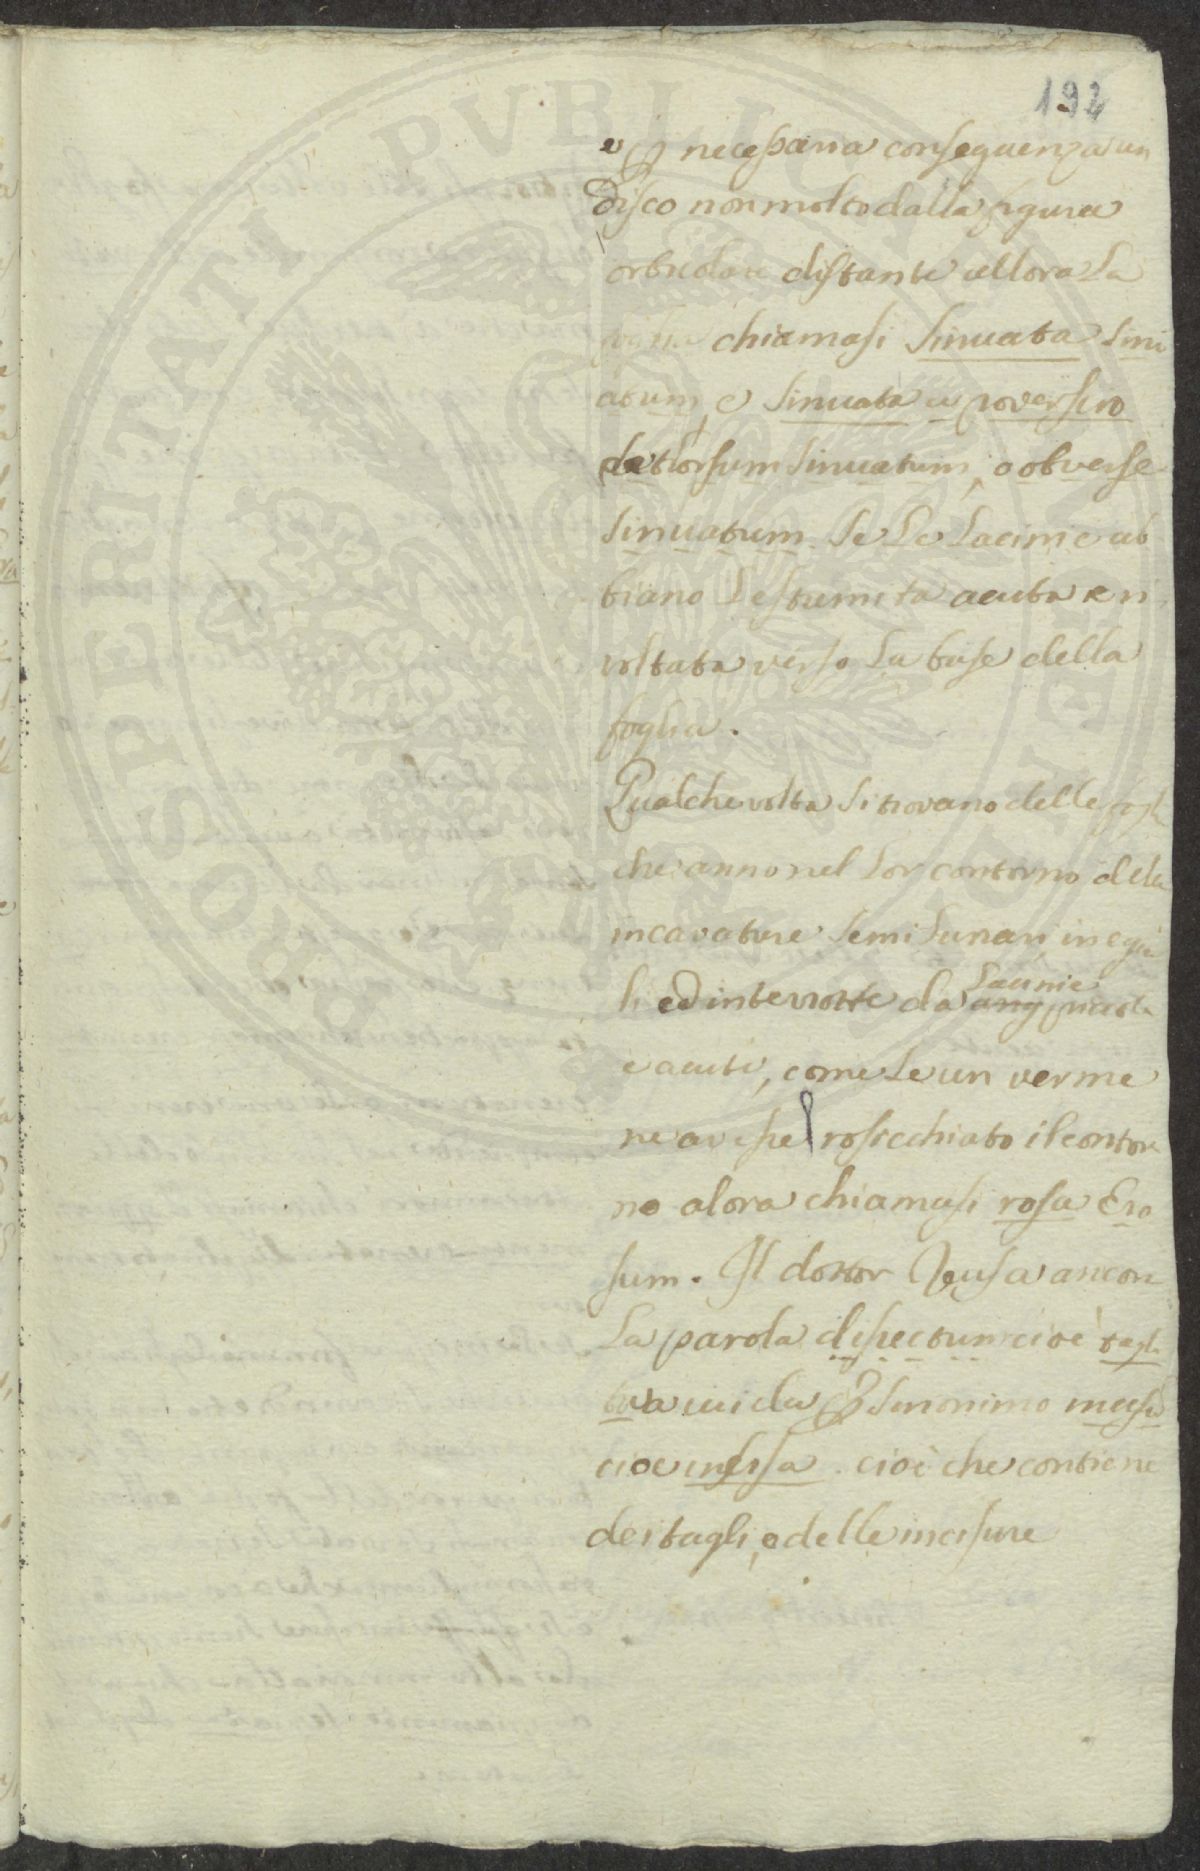 192
e P necessaria conseguenza un
disco non molto dalla figura
orbicolare distante allora la
foglia chiamasi sinuata sinu
atum, e sinuata a roverscio
detrorsum sinuatum, o obverse
sinuatum. Se le lacinie ab
biano l'estremita acuta e ri
voltata verso la base della
foglia.
Qualche volta si trovano delle fogl
che anno nel lor contorno delle
incavature semilunari, inegua
li ed interrotte da lacinie
e acuti, come se un verme
ne avesse rosicchiato il contor
no alora chiamasi rosa Ero
sum. Il dottor usa ancor
la parola dissectum cioè tagli
ed P sinonimo incisu
cioe incisa. cioè che contiene
dei tagli, e delle incisure
PROSPERITATI PUBLICAE